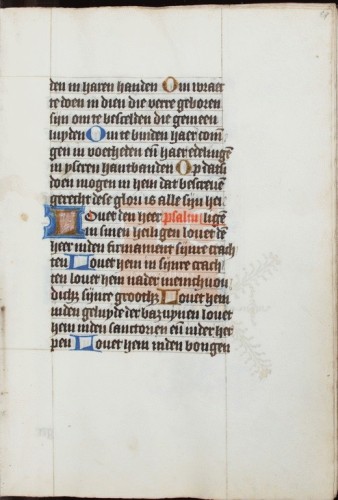 den in haren handen Om wrake
te doen in dien die verre geboren
sijn om te beschelden die gemeen
luyden Om te binden haer com
gen in voetheden en̄ haer edelinge
in yseren hantbanden Op dat si
doen mogen in hem dat bescreue
gerecht dese glori is alle sijn hei
Louet den heer psalm
in sinen heiligen louet de
heer inden firmament sijnre crach
ten Louet hem in sijnre crach
ten louet hem nader menichuou
dich sijnre grootheit Louet hem
inden geluyde der bazuynen louet
hem inden sanctorien en̄ inder her
pen Louet hem inden bongen